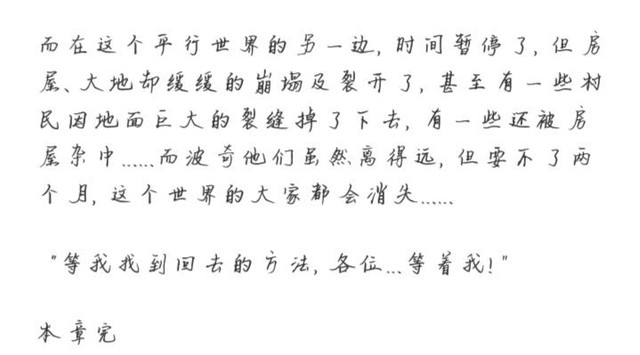 而在这个平行世界的另一边, 时间暂停了, 但房
屋、大地却缓缓的崩塌及裂开了, 甚至有一些村
民因地面巨大的裂缝掉了下去, 有一些还被房
屋杂中......而波奇他们虽然离得远, 但要不了两
个月, 这个世界的大家都会消失......
"等我找到回去的方法, 各位...等着我!"
本章完